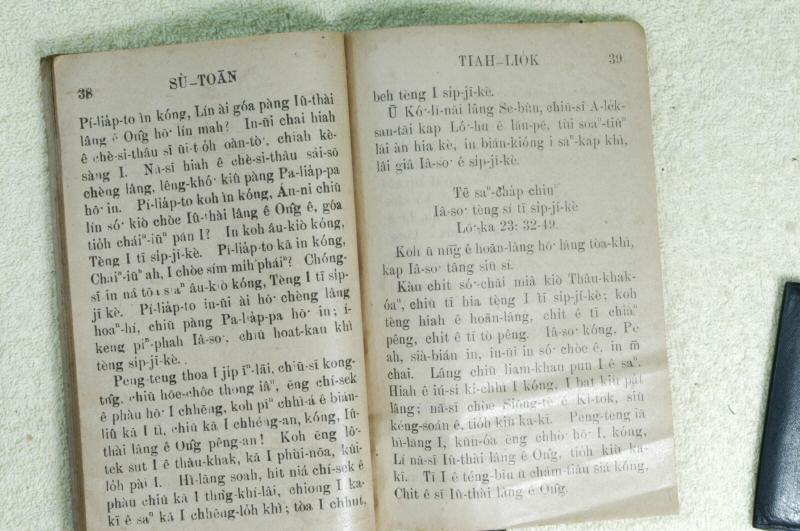 38
SÙ-TOĀN
Pí-lia̍p-to ìn kóng, Lín ài góa pàng Iû-thài
lâng ê Ông hō͘ lín mah? In-ūi chai hiah
ê chè-si-thâu sī ūi-tio̍h oàn-tò͘, chiah kè-
sàng I. Nā-sī hiah ê chè-si-thâu sái-sō
chèng lâng, lêng-khó͘ kiû pàng Pa-lia̍p-pa
hō͘ in. Pí-lia̍p-to koh ìn kóng, Án-ni chiū
lín só͘ kiò chòe Iû-thài lâng ê Ông ê, góa
tio̍h cháiⁿ-iūⁿ pān I? In koh âu-kiò kóng,
Tèng I tī si̍p-jī-kè. Pí-lia̍p-to kā in kóng,
Cháiⁿ-iūⁿ ah, I chòe sím-mi̍h pháiⁿ? Chóng-
sī in ná tōa siaⁿ âu-kiò kóng, Tèng I tī si̍p-
jī-kè. Pí-lia̍p-to in-ūi ài hō͘ chèng lâng
hoaⁿ-hí, chiū pàng Pa-lia̍p-pa hō͘ in; í-
keng piⁿ-phah Iâ-so͘, chiū hoat-kau khì
tèng si̍p-jī-kè.
Peng-teng thoa I ji̍p iⁿ-lāi, chiū-sī kong-
tn̂g, chiū hōe-chôe thong iâⁿ, ēng chí-sek
ê phàu hō͘ I chhēng, koh piⁿ chhì-á ê bián-
liû kā I tì, chiū kā I chhéng-an, kóng, Iû-
thài lâng ê Ông pêng-an! Koh ēng lô͘-
tek sut I ê thâu-khak, kā I phùi-nōa, kūi-
lo̍h pài I. Hì-lāng soah, hit niá chí-sek ê
phàu chiū kā I thǹg-khí-lâi, chiong I ka-
kī ê saⁿ kā I chhēng-lo̍h khì; tòa I chhut,
TIAH-LIO̍K
39
beh tèng I si̍p-jī-kè.
Ū Kó͘-lī-nāi lâng Se-bûn, chiū-sī A-le̍k-
san-tāi kap Ló͘-hu ê lāu-pē, tùi soaⁿ-tiūⁿ
lâi àn hia kè, in bián-kióng i saⁿ-kap khì,
lâi giâ Iâ-so͘ ê si̍p-jī-kè.
Tē saⁿ-cha̍p chiuⁿ
Iâ-so͘ tèng sí tī si̍p-jī-kè
Lō͘-ka 23: 32-49.
Koh ū nn̄g ê hoān-lâng hō͘ lâng tòa-khì,
kap Iâ-so͘ tâng siū sí.
Kàu chi̍t só͘-chāi miâ kiò Thâu-khak-
óaⁿ, chiū tī hia tèng I tī si̍p-jī-kè; koh
tèng hiah ê hoān-lâng, chi̍t ê tī chiàⁿ
pêng, chi̍t ê tī tò pêng. Iâ-so͘ kóng, Pē
ah, sià-bián in, in-ūi in só͘ chòe ê, in m̄
chai. Lâng chiū liam-khau pun I ê saⁿ.
Hiah ê iú-sî kí-chhì I kóng, I bat kiù pa̍t
lâng; nā-sī chòe Siōng-tè ê Ki-tok, siū
kéng-soán ê, tio̍h kiù ka-kī. Peng-teng iā
hì-lāng I, kūn-óa ēng chhò͘ hō͘ I, kóng,
Lí nā-sī Iû-thài lâng ê Ông, tio̍h kiù ka-
kī. Tī I ê téng-bīn ū chám-tiâu siá kóng,
Chit ê sī Iû-thài lâng ê Ông.